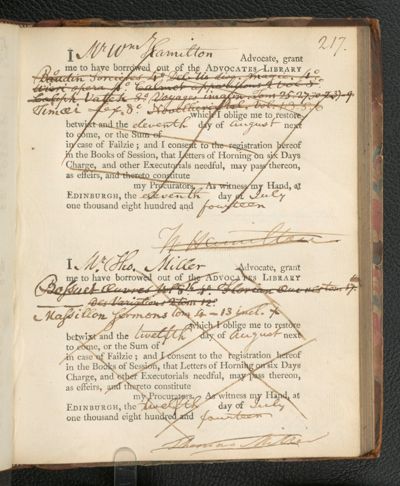 217.
I Mr Wm Hamilton Advocate, grant
me to have borrowed out of the ADVOCATES LIBRARY
which I oblige me to restore
betwixt and the eleventh day of August next
to come, or the Sum of
in case of Failzie; and I consent to the registration hereof
in the Books of Session, that Letters of Horning on six Days
Charge, and other Executorials needful, may pass thereon,
as effeirs, and thereto constitute
my Procurators. As witness my Hand, at
EDINBURGH, the eleventh day of July
one thousand eight hundred and fourteen
W Hamilton
I Mr Tho. Miller Advocate, grant
me to have borrowed out of the ADVOCATES LIBRARY
Bossuet Œuvres
des Variations 2 tom 12°
Massillon Sermons tom 4-13 incl.
which I oblige me to restore
betwixt and the twelfth day of August next
to come, or the Sum of
in case of Failzie; and I consent to the registration hereof
in the Books of Session, that Letters of Horning on six Days
Charge, and other Executorials needful, may pass thereon,
as effeirs, and thereto constitute
my Procurators. As witness my Hand, at
EDINBURGH, the twelfth day of July
one thousand eight hundred and fourteen
Thomas Miller